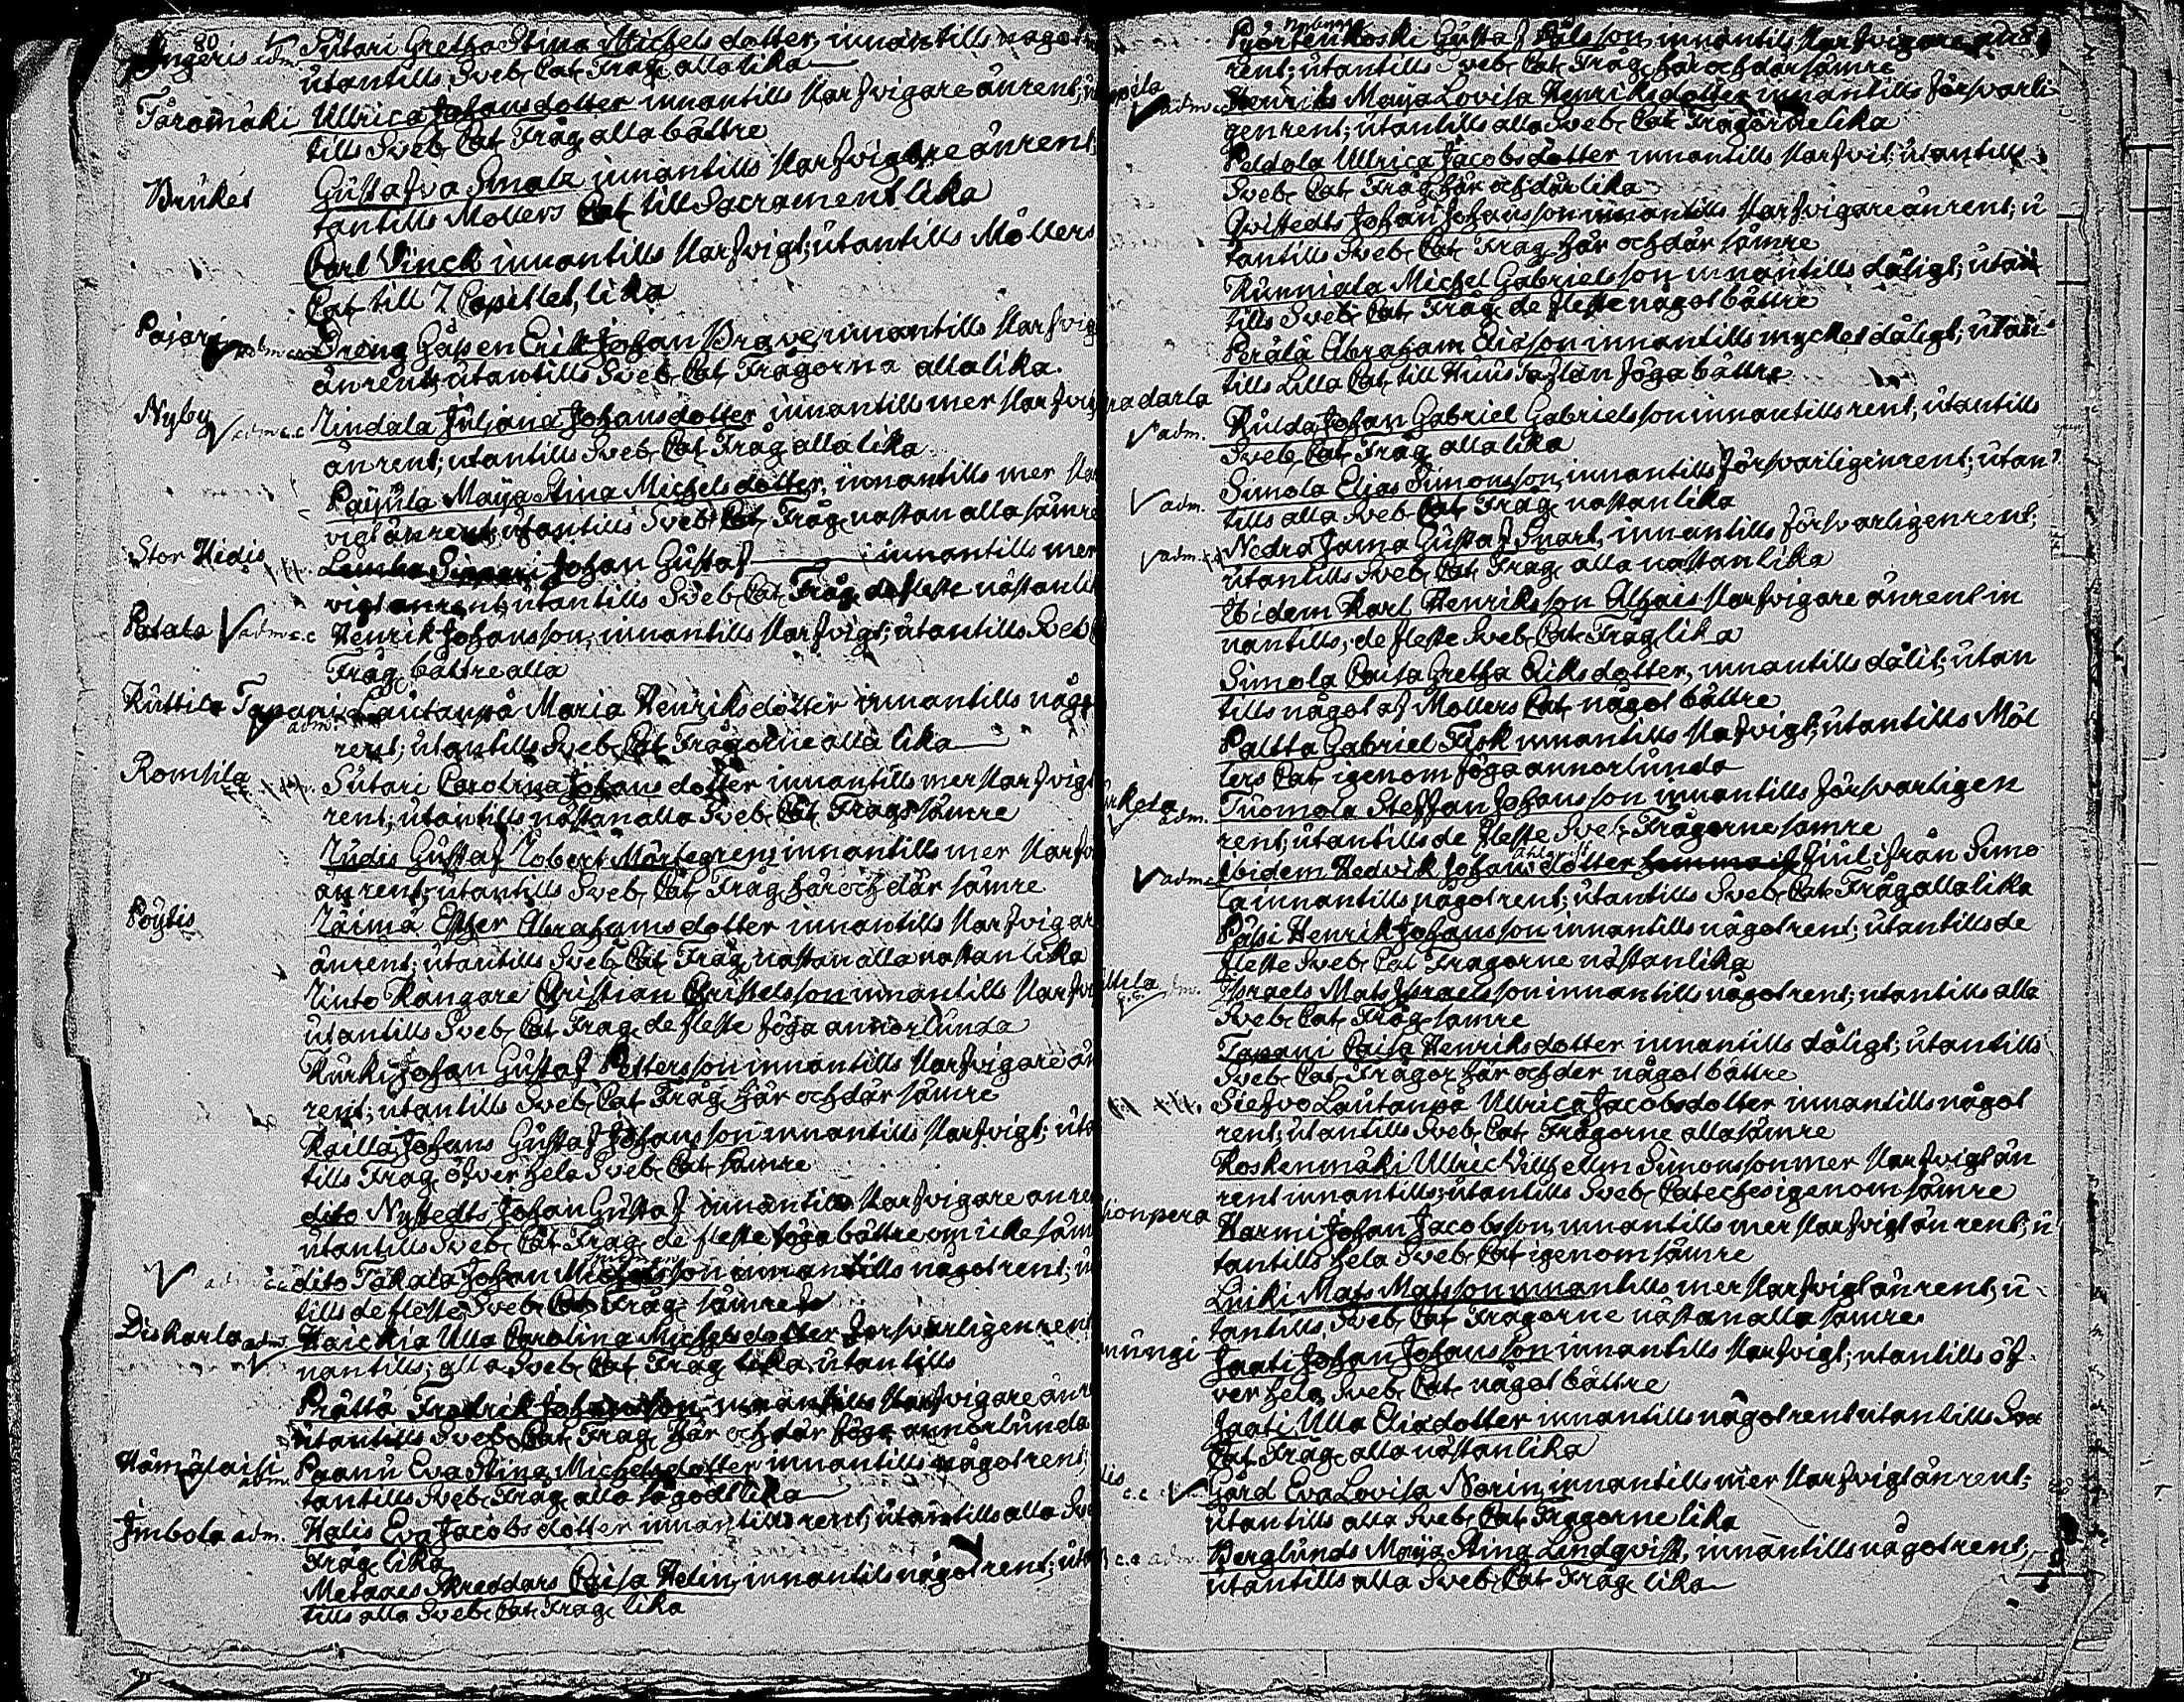 80
Ingeris adm. Sutari Gretha Stina Michels dotter, innantills något
utantills Sveb. Cat. Fråg. alla lika
Taromäki Ullrica Johans dotter innantills starfvigare än rent; u
tills Sveb. Cat. Fråg. alla bättre
Bruket Gustafva Smalz innantills starfvigare än rent
tantills Möllers Cat. till Sacrament lika
Carl Vinck innantills starfvigt; utantills Möllers
Cat. till 7 Capittlet, lika
Pajari adm. Dreng Gåssen Erik Johan Brave, innantills starfvig
än rent; utantills Sveb. Cat. Frågorna alla lika.
Nyby adm. c.c Lindala Juliana Johansdotter innantills mer starfvig
än rent; utantills Sveb. Cat. Fråg. alla lika
Maija Stina Michels dotter, innantills mer star
vigt än rent utantills Sveb. Cat. Fråg. nästan alla sämre
Stor Hidis Johan Gustaf innantills mer
vigt än rent; utantills Sveb. Cat. Fråg. de fleste nästan li
Patala adm. c.c Henrik Johansson, innantills starfvigt; utantills Sveb
Fråg. bättre alla
Kuttila Tapani adm. Lautanpä Maria Henriksdotter innantills någo
rent; utantills Sveb. Cat. Frågorne alla lika
Romsila Sutari Carolina Johans dotter innantills mer starfvigt
rent; utantills nästan alla Sveb. Cat. Frågor sämre
Gustaf Robert Mörtegren, innantills mer starfv
än rent; utantills Sveb. Cat. Fråg. här och där sämre
Pöytis Räimä Esther Abrahams dotter innantills starfvigar
än rent; utantills Sveb. Cat. Fråg. nästan alla nästan lika
Kangare Christian Christelsson innantills starfvi
utantills Sveb. Cat. Fråg. de fleste föga annorlunda
Kurki Johan Gustaf Pettersson innantills starfvigare än
rent; utantills Sveb. Cat. Fråg. här och där sämre
Kailla Johans Gustaf Johansson innantills starfvigt; uta
tills Fråg. öfver hela Sveb. Cat. sämre
dito Nystedts Johan Gustaf innantills starfvigare än re
utantills Sveb. Cat. Fråg. de fleste föga bättre om icke säm
dito Takala Johan innantills något rent; u
tills de fleste Sveb. Cat. Fråg. sämre
Diskarla adm. Haickia Ulla Carolina Michelsdotter försvarligen rent
nantills; alla Sveb. Cat. Fråg. lika utantills
Prättä Fredrik Johansson innantills starfvigare än r
utantills Sveb. Cat. Fråg. här och där föga annorlunda
Hämäläisi adm. Paanu Eva Stina Michelsdotter innantills något rent
tantills Sveb. Fråg. alla så godt lika
Imbola adm. Halis Eva Jacobsdotter innantills rent; utantills alla Sve
Fråg. lika
Skreddars Caisa Helin, innantills något rent; uta
tills alla Sveb. Cat. Fråg. lika
Pyörtenkoski Gustaf innantills starfvigare än
rent; utantills Sveb. Cat. Fråg. här och där sämre
adm. Henriks Maija Lovisa Henriksdotter innantills försvarli
gen rent; utantills alla Sveb. Cat. Frågorne lika
Peldola Ullrica Jacobs dotter innantills starfvit; utantills
Sveb. Cat. Fråg. här och där lika
Qvistedts Johan Johansson innantills starfvigare än rent; u
tantills Sveb. Cat. Fråg. här och där sämre
Kunniala Michel Gabrielsson innantills dåligt; utan
tills Sveb. Cat. Fråg. de fleste något bättre
Perälä Abraham innantills mycket dåligt; utan
tills Lilla Cat. till Huus Taflan föga bättre
darla adm. Kulda Johan Gabriel Gabrielsson innantills rent; utantills
Sveb. Cat. Fråg. alla lika
adm. Simola Elias Simonsson, innantills försvarligen rent; utan
tills alla Sveb. Cat. Fråg. nästan lika
adm. Nedra Jama Gustaf Snart, innantills försvarligen rent;
utantills Sveb. Cat. Fråg. alla nästan lika
Ibidem Karl Henriksson starfvigare än rent in
nantills, de fleste Sveb. Cat. Fråg. lika
Simola Caisa Gretha Eriksdotter, innantills dålit; utan
tills något af Möllers Cat. något bättre
Paltta Gabriel innantills starfvigt; utantills Möl
lers Cat. igenom föga annorlunda
adm. Tuomola Steffan Johansson innantills försvarligen
rent; utantills de fleste Sveb. Frågorne sämre
adm. Ibidem Hedvik Johans dotter från Simo
la innantills något rent; utantills Sveb. Cat. Fråg. alla lika
Pälsi Henrik Johansson innantills något rent; utantills de
fleste Sveb. Cat. Frågorne nästan lika
Israels Mats Israelsson innantills något rent; utantills alla
Sveb. Cat. Fråg. sämre
Tapani Caisa Henriksdotter innantills dåligt; utantills
Sveb. Cat. Frågor här och der något bättre
Lautanpä Ullrica Jacobsdotter innantills något
rent; utantills Sveb. Cat. Frågorne alla sämre
Koskenmäki Ullric Villhellm Simonsson mer starfvigt än
rent innantills; utantills Sveb. Cateches igenom sämre
Harmi Johan Jacobsson, innantills mer starfvigt än rent; u
tantills hela Sveb. Cat. igenom sämre
Leiki Mats Matsson innantills mer starfvigt än rent; u
tantills Sveb. Cat. Frågorne nästan alla sämre
Jaati Johan Johansson innantills starfvigt; utantills öf
ver hela Sveb. Cat. något bättre
Jaati Ulla Eliædotter innantills något rent utantills Sve
Cat. Fråg. alla nästan lika
Gård Eva Lovisa Norin, innantills mer starfvigt än rent;
utantills alla Sveb. Cat. Frågorne lika
c.c adm. Berglunds Maija Stina Lindqvist, innantills något rent;
utantills alla Sveb. Cat. Fråg. lika